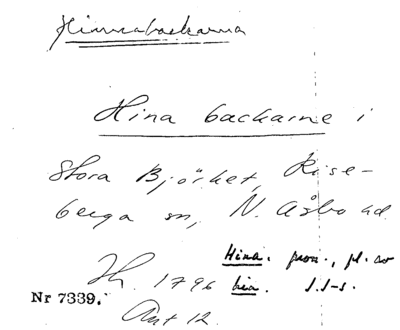 Hinnabackarna
Hina backarne i
Stora Björket, Rise-
berga sn, N. Åsbo hd.
Hina. pron., pl. av
1796 hin. s.l-s.
Nr 7339.
Akt 12